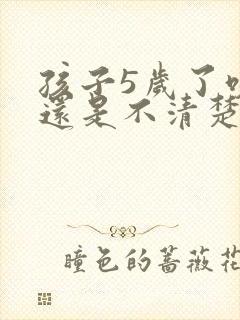 孩子5歲了
還是不清楚
瞳色的薔薇花